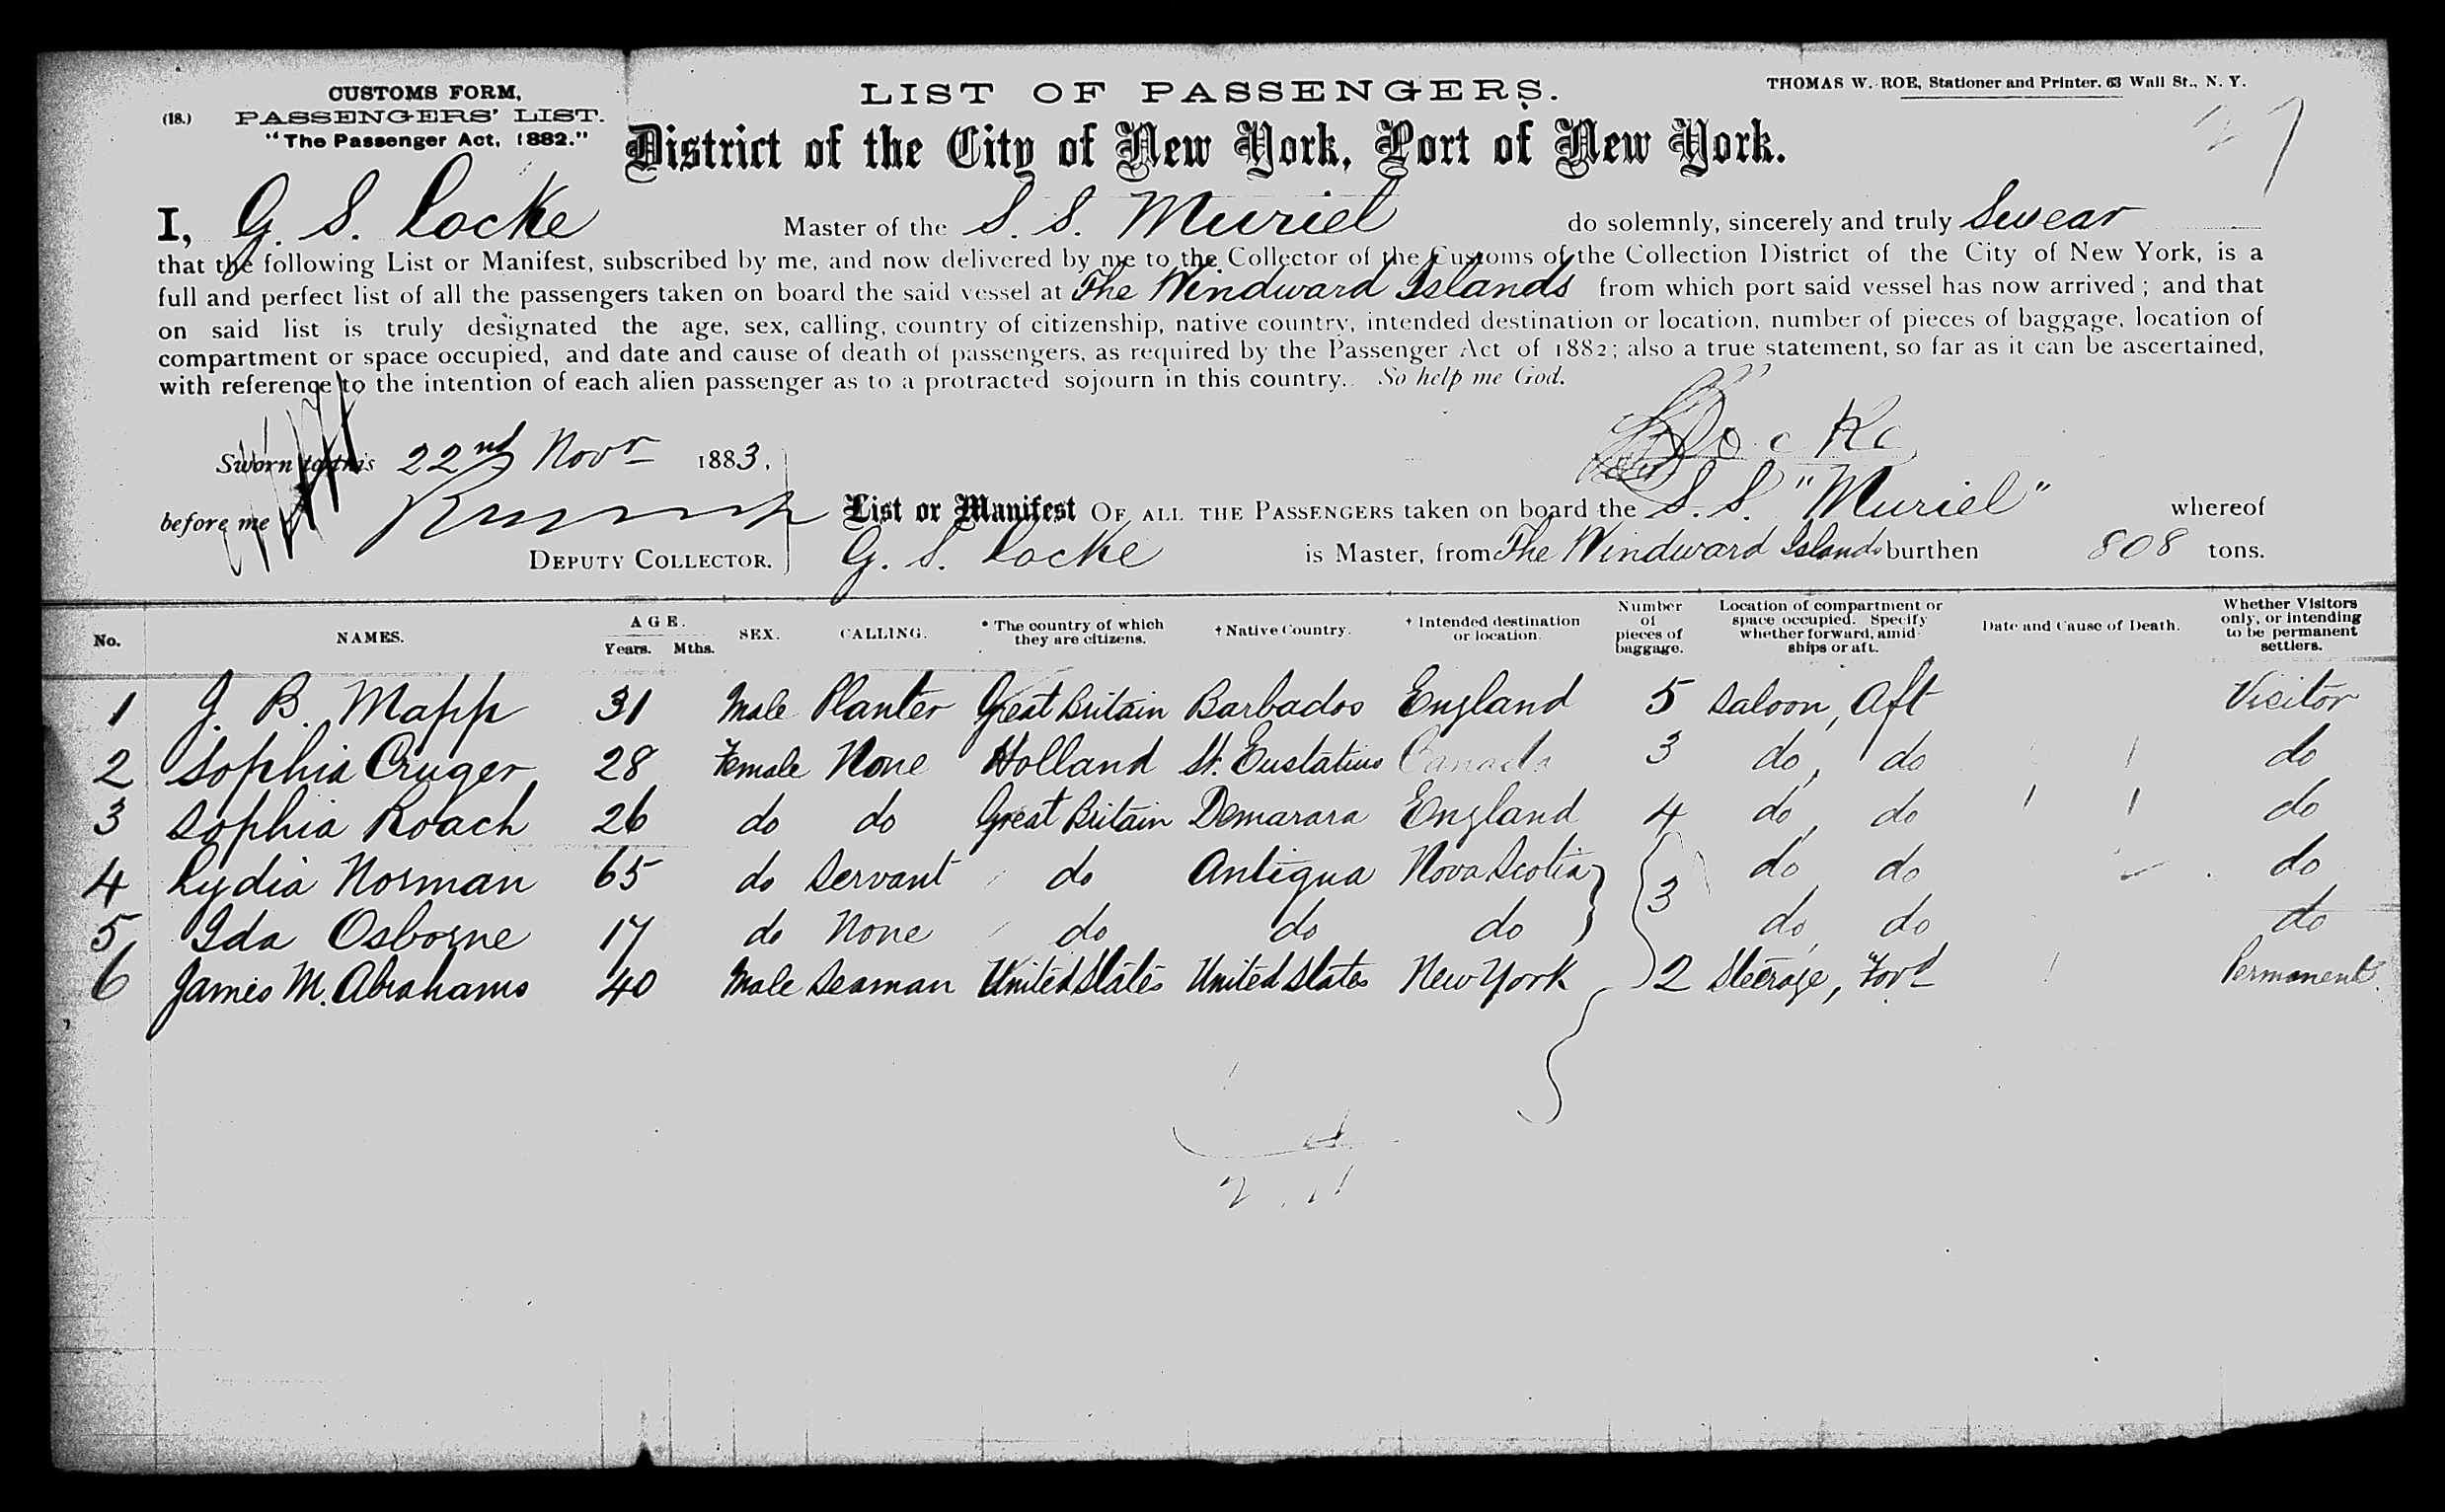 CUSTOMS FORM,
(18.) PASSENGERS' LIST.
"The Passenger Act, 1882."
LIST OF PASSENGERS.
THOMAS W. ROE, Stationer and Printer. 63 Wall St., N. Y.
District of the City of New York, Port of New York.
I, G. S. Locke Master of the S. S. Muriel do solemnly, sincerely and truly Swear
that the following List or Manifest, subscribed by me, and now delivered by me to the Collector of the Customs of the Collection District of the City of New York, is a
full and perfect list of all the passengers taken on board the said vessel at The Windward Islands from which port said vessel has now arrived; and that
on said list is truly designated the age, sex, calling, country of citizenship, native country, intended destination or location, number of pieces of baggage, location of
compartment or space occupied, and date and cause of death of passengers, as required by the Passenger Act of 1882; also a true statement, so far as it can be ascertained,
with reference to the intention of each alien passenger as to a protracted sojourn in this country. So help me God.
Locke
Sworn to this 22nd Novr 1883,
before me
DEPUTY COLLECTOR.
List or Manifest OF ALL THE PASSENGERS taken on board the S. S. "Muriel" whereof
G. S. Locke is Master, from The Windward Islands burthen 808 tons.
No. NAMES. AGE. Years. Mths. SEX. CALLING. * The country of which they are citizens. † Native Country. † Intended destination or location. Number of pieces of baggage. Location of compartment or space occupied. Specify whether forward, amid ships or aft. Date and Cause of Death. Whether Visitors only, or intending to be permanent settlers.
1 J. B. Mapp 31 Male Planter Great Britain Barbados England 5 Saloon, Aft Visitor
2 Sophia Cruger 28 Female None Holland St. Eustatius Canada 3 do, do do
3 Sophia Roach 26 do do Great Britain Demarara England 4 do, do do
4 Lydia Norman 65 do Servant do Antigua Nova Scotia 3 do, do do
5 Ida Osborne 17 do None do do do do, do do
6 James M. Abrahams 40 Male Seaman United States United States New York 2 Steerage, Ford Permanent.